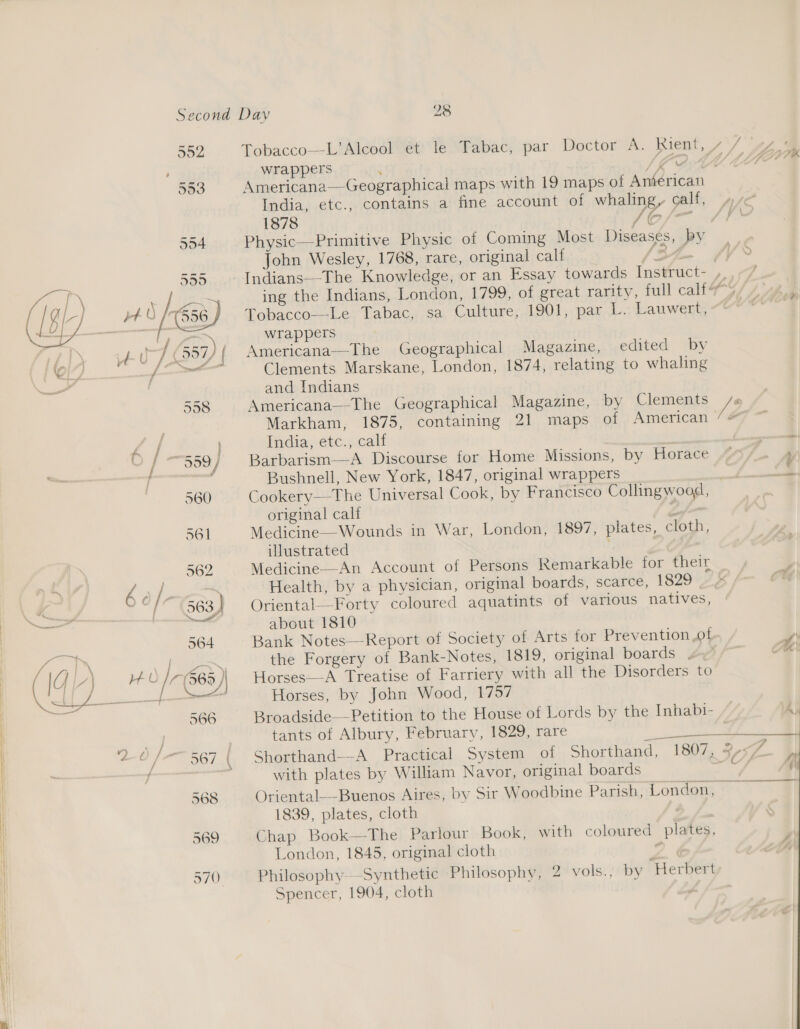 Second Day 28
552 Tobacco—L'Alcool et le Tabac, par Doctor A. Rient,
wrappers
553 Americana—Geographical maps with 19 maps of American
India, etc., contains a fine account of whaling, calf,
1878
554 Physic—Primitive Physic of Coming Most Diseases, by
John Wesley, 1768, rare, original calf
555 Indians—The Knowledge, or an Essay towards Instruct-
ing the Indians, London, 1799, of great rarity, full calf
556 Tobacco—Le Tabac, sa Culture, 1901, par L. Lauwert,
wrappers
557 Americana—The Geographical Magazine, edited by
Clements Marskane, London, 1874, relating to whaling
and Indians
558 Americana—The Geographical Magazine, by Clements
Markham, 1875, containing 21 maps of American
India, etc., calf
559 Barbarism—A Discourse for Home Missions, by Horace
Bushnell, New York, 1847, original wrappers
560 Cookery—The Universal Cook, by Francisco Collingwood,
original calf
561 Medicine—Wounds in War, London, 1897, plates, cloth,
illustrated
562 Medicine—An Account of Persons Remarkable for their
Health, by a physician, original boards, scarce, 1829
563 Oriental—Forty coloured aquatints of various natives,
about 1810
564 Bank Notes—Report of Society of Arts for Prevention of
the Forgery of Bank-Notes, 1819, original boards
565 Horses—A Treatise of Farriery with all the Disorders to
Horses, by John Wood, 1757
566 Broadside—Petition to the House of Lords by the Inhabi-
tants of Albury, February, 1829, rare
567 Shorthand—A Practical System of Shorthand, 1807,
with plates by William Navor, original boards
568 Oriental—Buenos Aires, by Sir Woodbine Parish, London,
1839, plates, cloth
569 Chap Book—The Parlour Book, with coloured plates,
London, 1845, original cloth
570 Philosophy—Synthetic Philosophy, 2 vols., by Herbert
Spencer, 1904, cloth